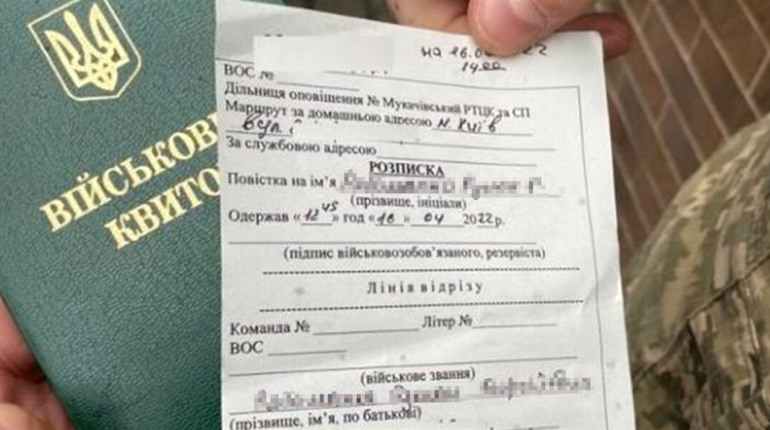 ВІЙСЬКОВ
КВИТО
на 16.0 22
14.00
ВОС №
Дільниця оповіщення № Мукачівський РТЦК та СП
Маршрут за домашньою адресою м. Київ
вул.
За службовою адресою
РОЗПИСКА
Повістка на ім'я
(прізвище, ініціали)
Одержав «12 45» год «16» 04 2022 р.
(підпис військовозобов'язаного, резервіста)
Лінія відрізу
Команда № Літер №
ВОС
(військове звання)
(прізвище, ім'я, по батькові)